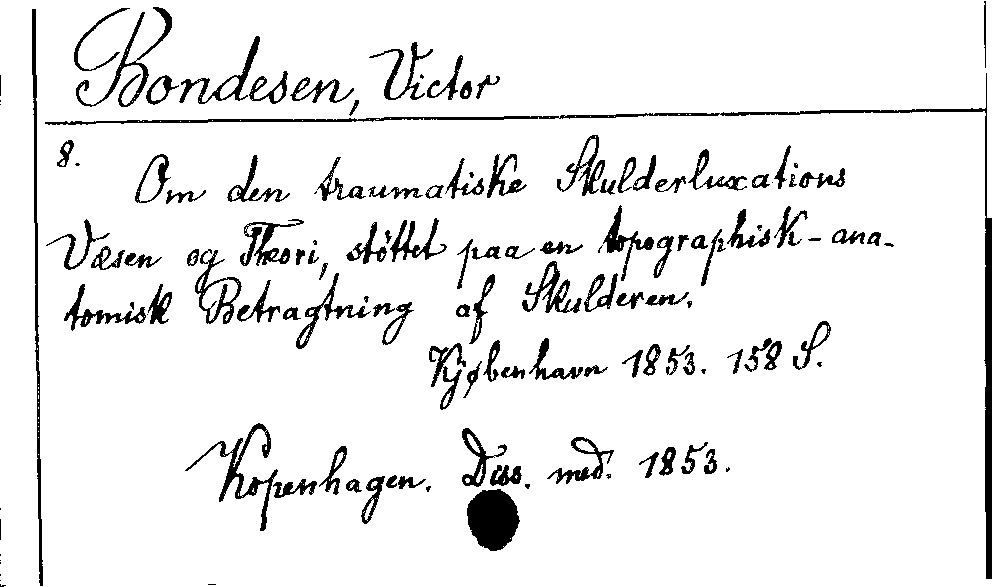 Bondesen, Victor
8.
Om den traumatiske Skulderluxations
Væsen og Theori, støttet paa en topographisk-ana-
tomisk Betragtning af Skulderen.
Kjøbenhavn 1853. 158 S.
Kopenhagen. Diss. med. 1853.